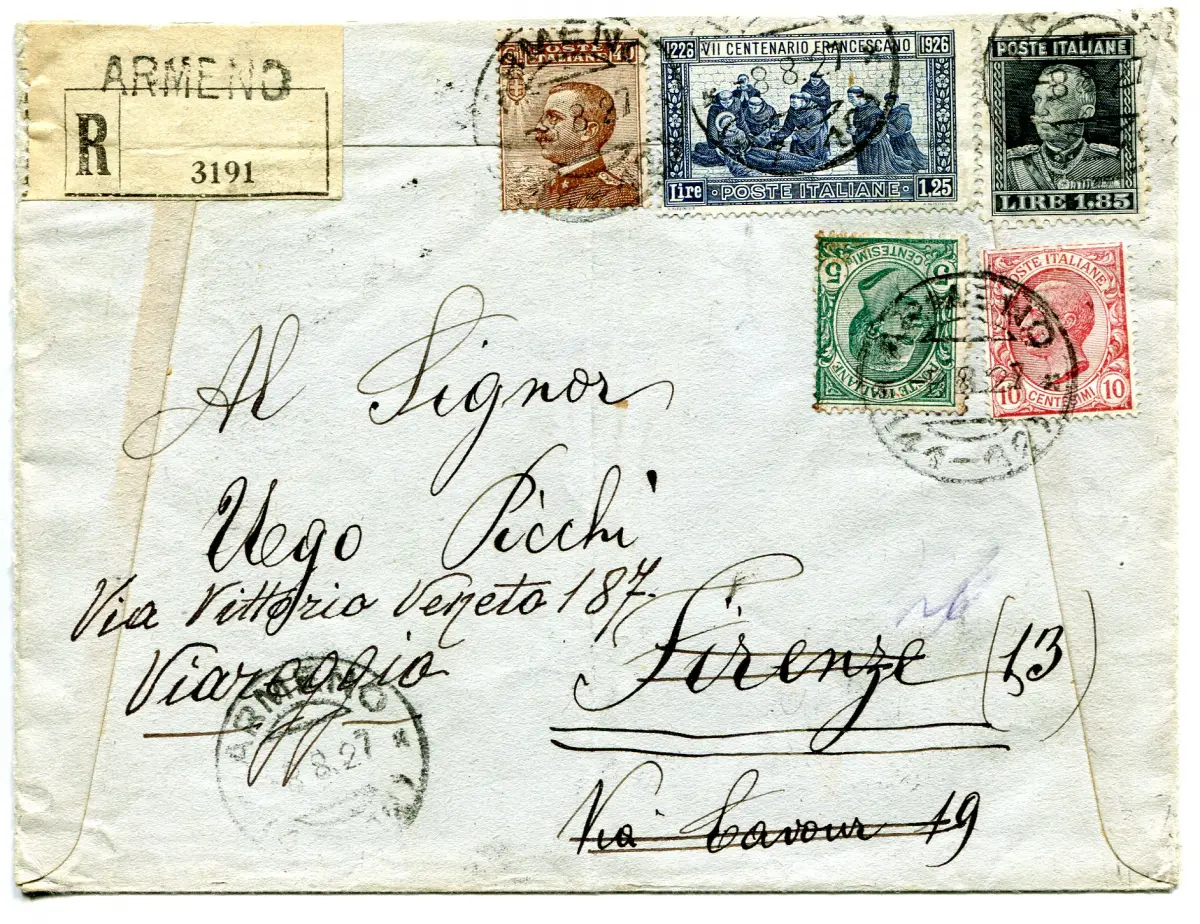 ARMENO
R
3191
POSTE
ITALIANE
1226 VII CENTENARIO FRANCESCANO 1926
Lire POSTE ITALIANE 1.25
POSTE ITALIANE
LIRE 1.85
5 CENTESIMI 5
POSTE ITALIANE
POSTE ITALIANE
10 CENTESIMI 10
ARMENO
8.27
Al Signor
Ugo Picchi
Via Vittorio Veneto 187.
Viareggio
Firenze (13)
Via Cavour 19
ARMENO
8.27